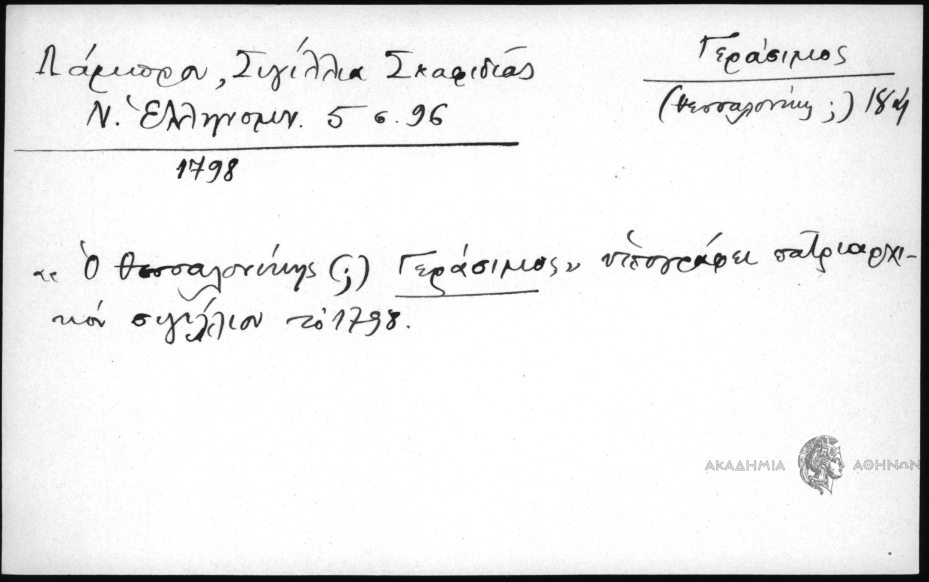 Λάμπρου, Σιγίλλια Σκαφιδιάς
Ν. Ἑλληνομν. 5 σ. 96
1798
Γεράσιμος
(Θεσσαλονίκης ;) 18
"Ὁ Θεσσαλονίκης (;) Γεράσιμος" ὑπογράφει πατριαρχι-
κόν σιγίλλιον τό 1798.
ΑΚΑΔΗΜΙΑ ΑΘΗΝΩΝ